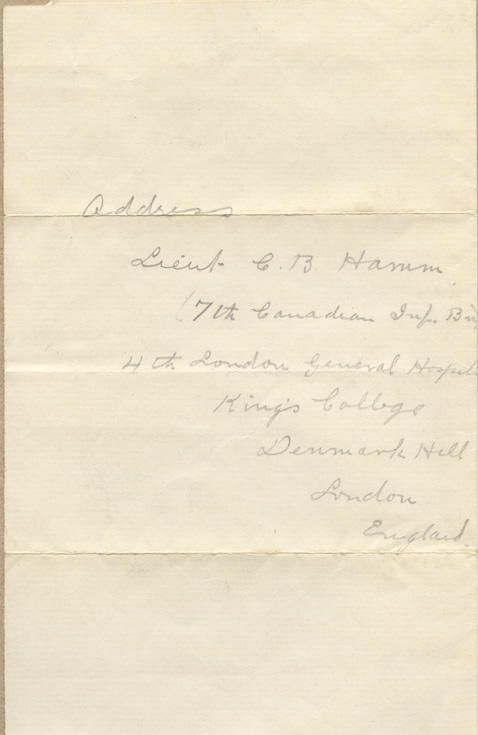 Address
Lieut C. B. Hamm
(7th Canadian Inf. Bn
4th London General Hospit
King's College
Denmark Hill
London
England.